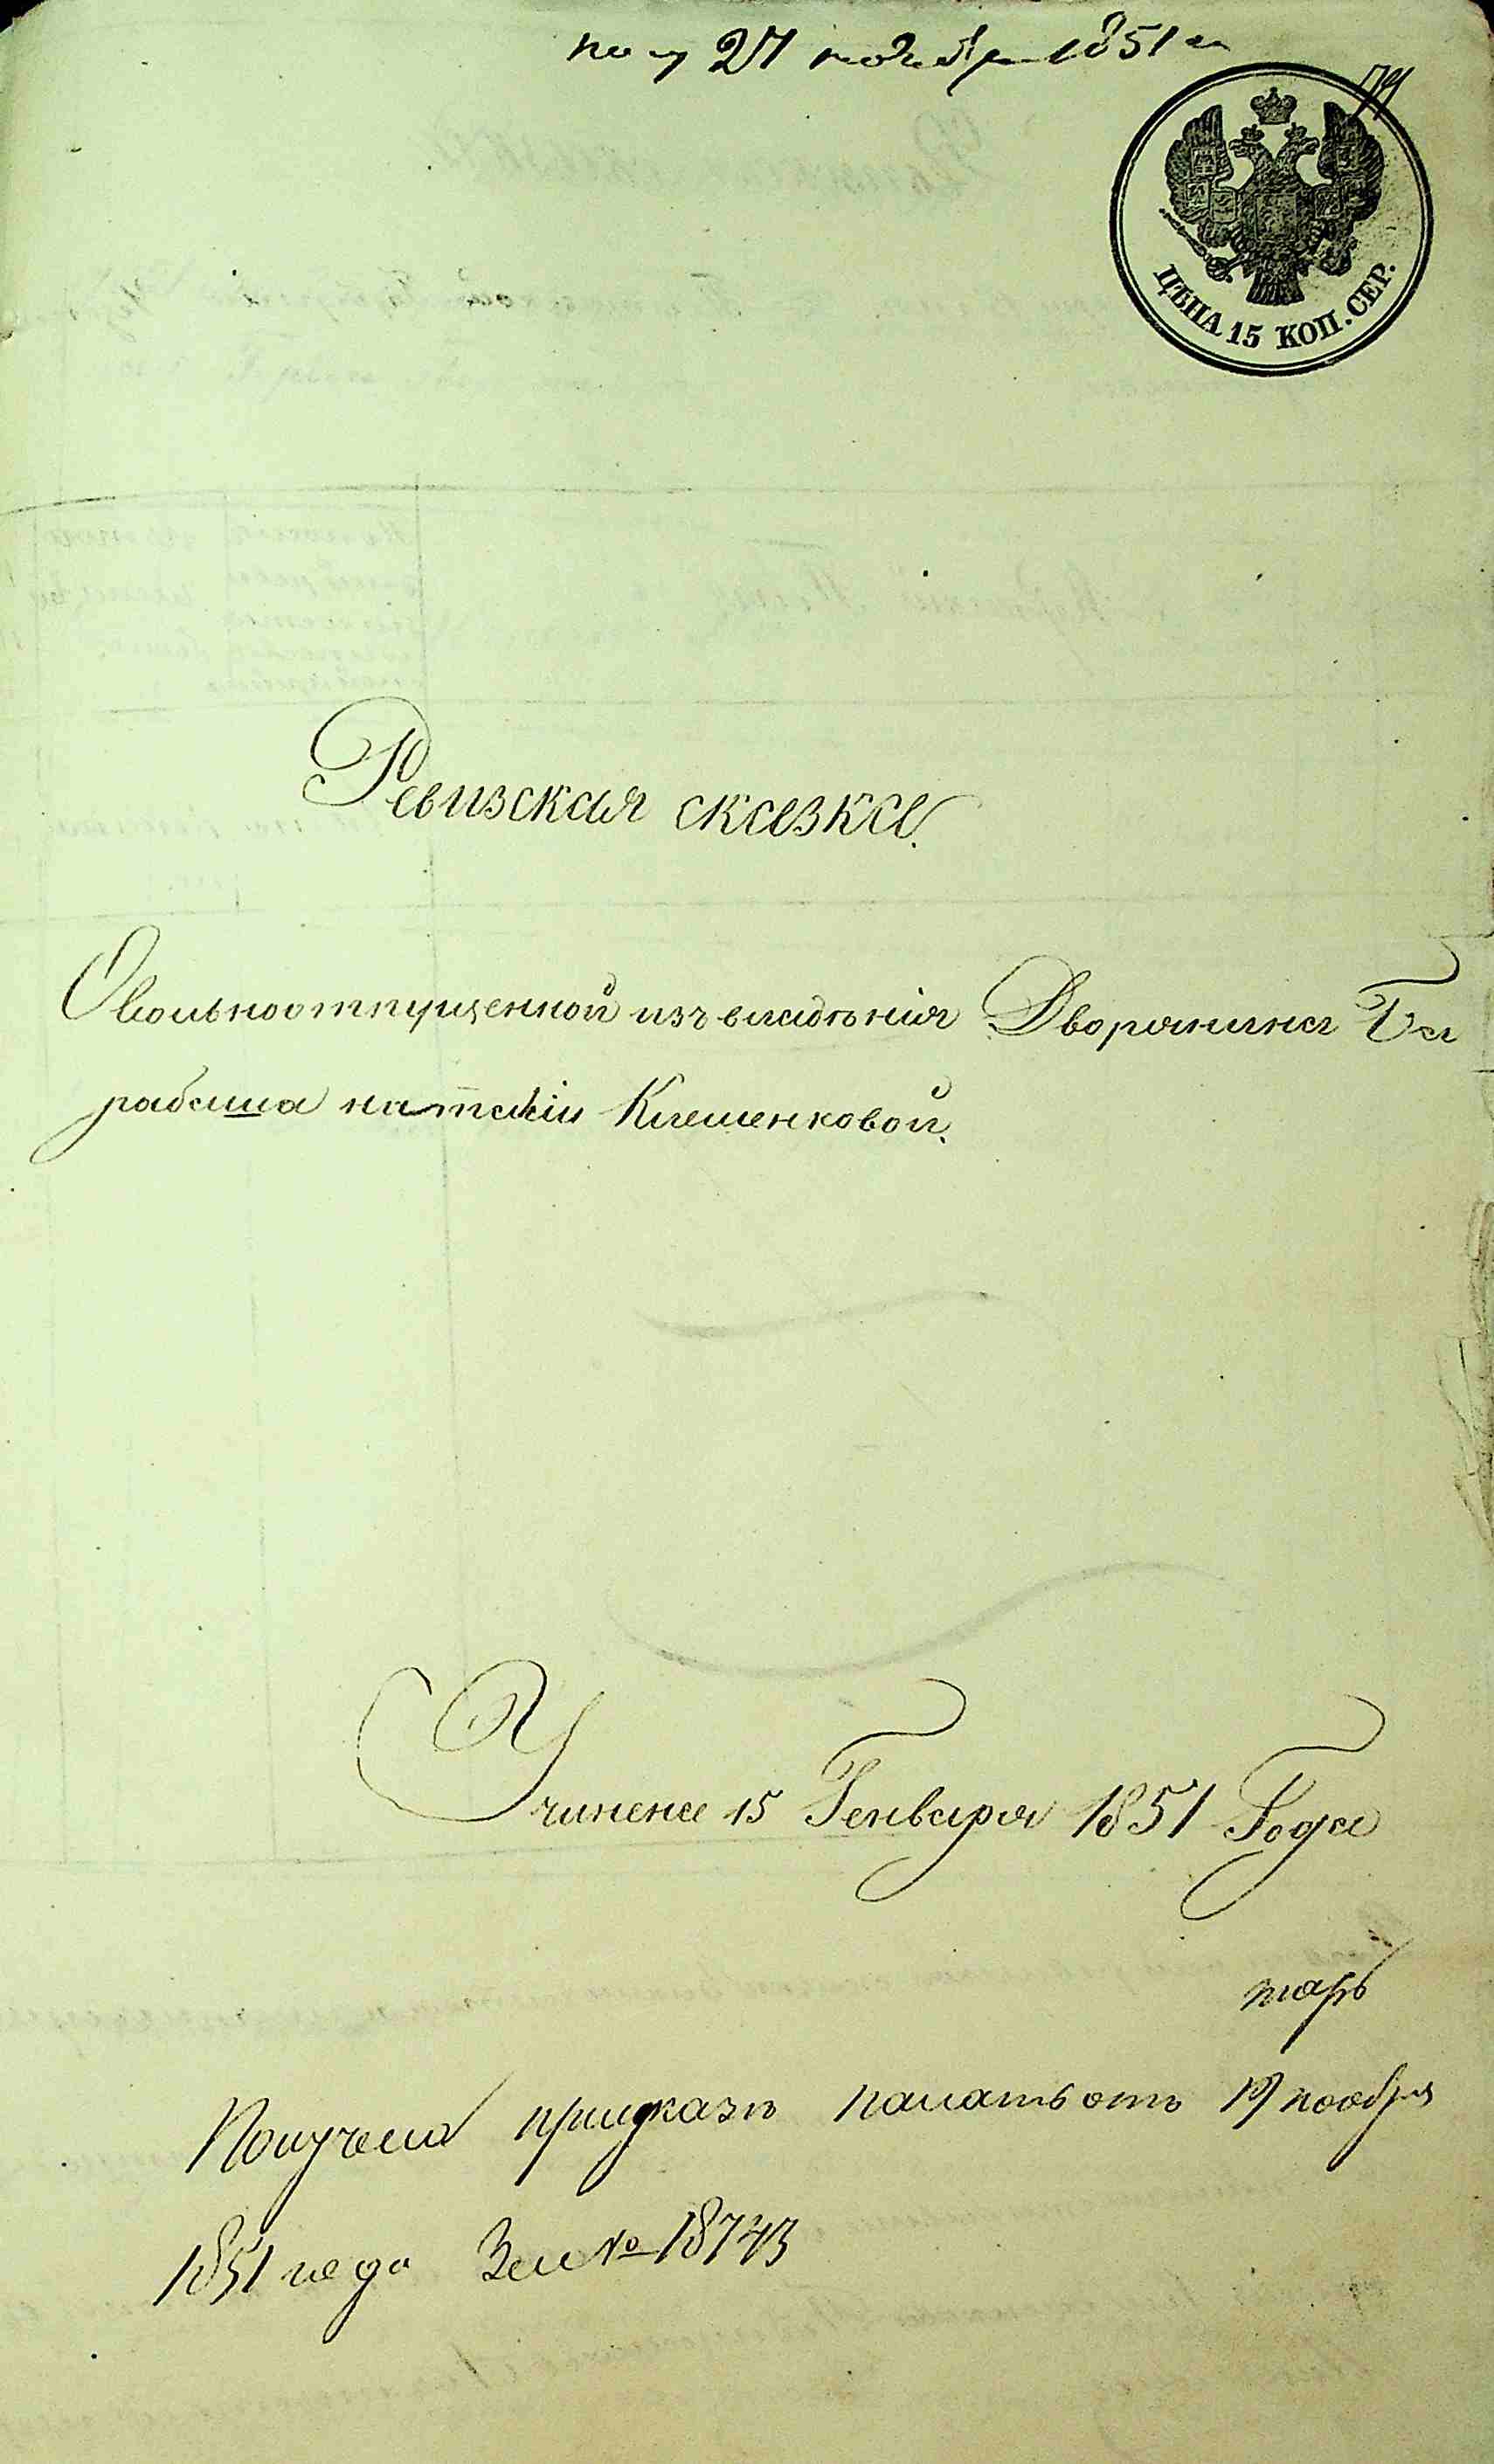 пол 27 ноября 1851 го
ЦѢНА 15 КОП. СЕР.
Ревизская сказка.
О вольноотпущенной изъ владѣнія Дворянина Ба
рабаша наталіи Клеменковой.
Учинена 15 Генваря 1851 Года
Получена приуказѣ палаты отъ 19 ноября
1851 года За № 18743